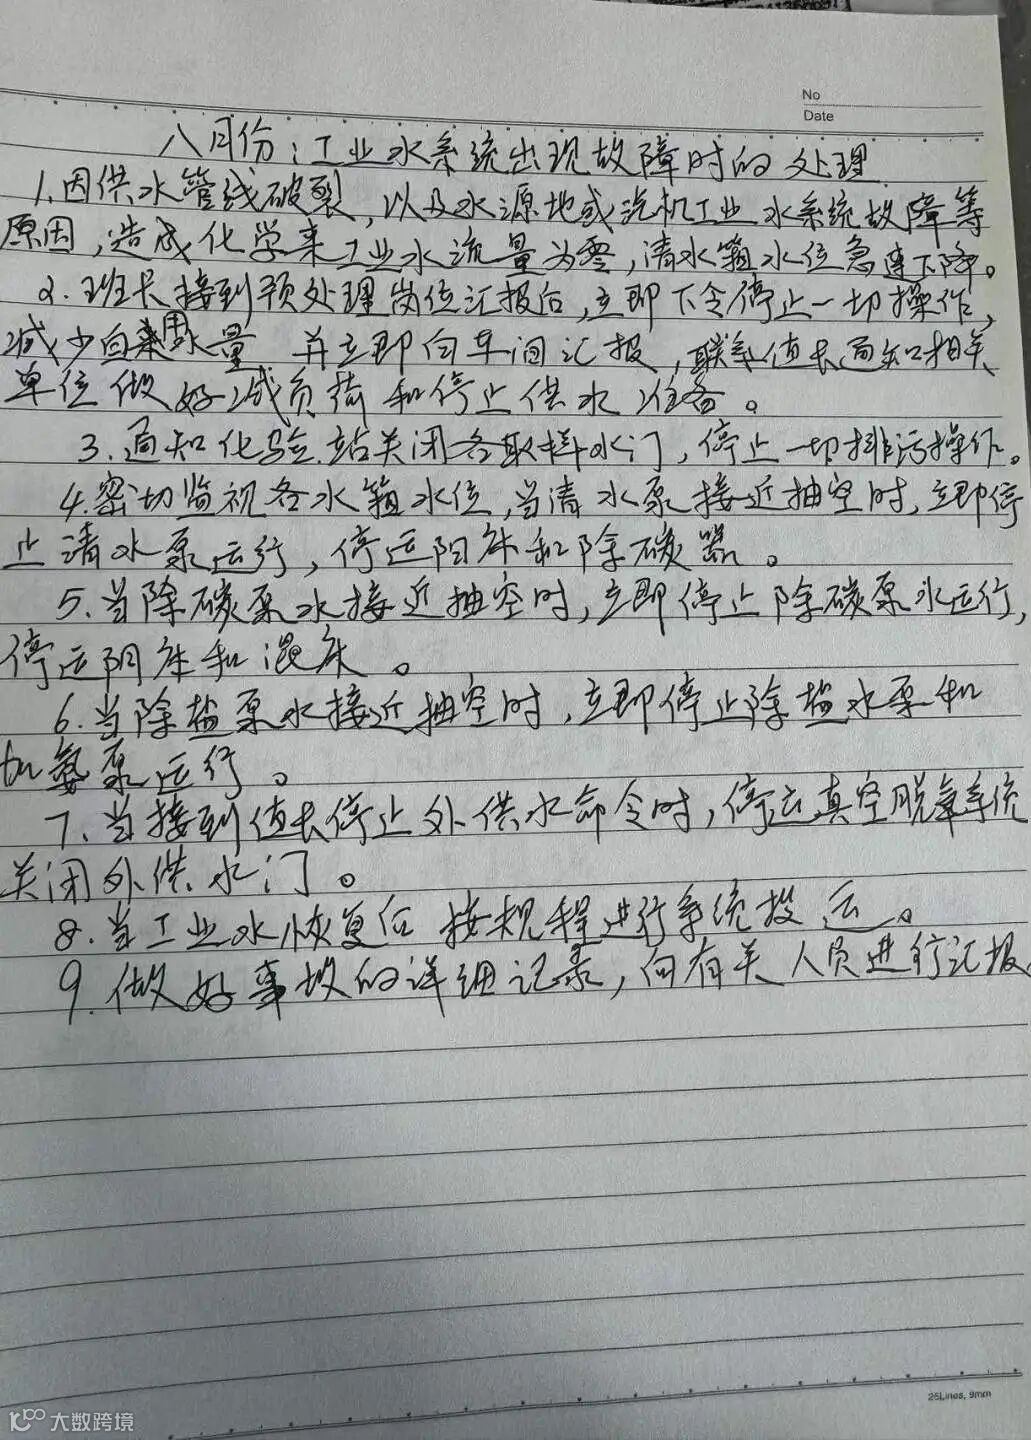 No
Date
八月份：工业水系统出现故障时的处理
1.因供水管线破裂，以及水源地或汽机工业水系统故障等
原因，造成化学来工业水流量为零，清水箱水位急速下降。
2.班长接到预处理岗位汇报后，立即下令停止一切操作，
减少自用水量 并立即向车间汇报，联系值长通知相关
单位做好减负荷和停止供水准备。
3.通知化验站关闭各取样水门，停止一切排污操作。
4.密切监视各水箱水位，当清水泵接近抽空时，立即停
止清水泵运行，停运阳床和除碳器。
5.当除碳泵水接近抽空时，立即停止除碳泵水运行，
停运阴床和混床。
6.当除盐泵水接近抽空时，立即停止除盐水泵和
加氨泵运行。
7.当接到值长停止外供水命令时，停运真空脱氧系统
关闭外供水门。
8.当工业水恢复后 按规程进行系统投运。
9.做好事故的详细记录，向有关人员进行汇报
25Lines, 9mm
大数跨境